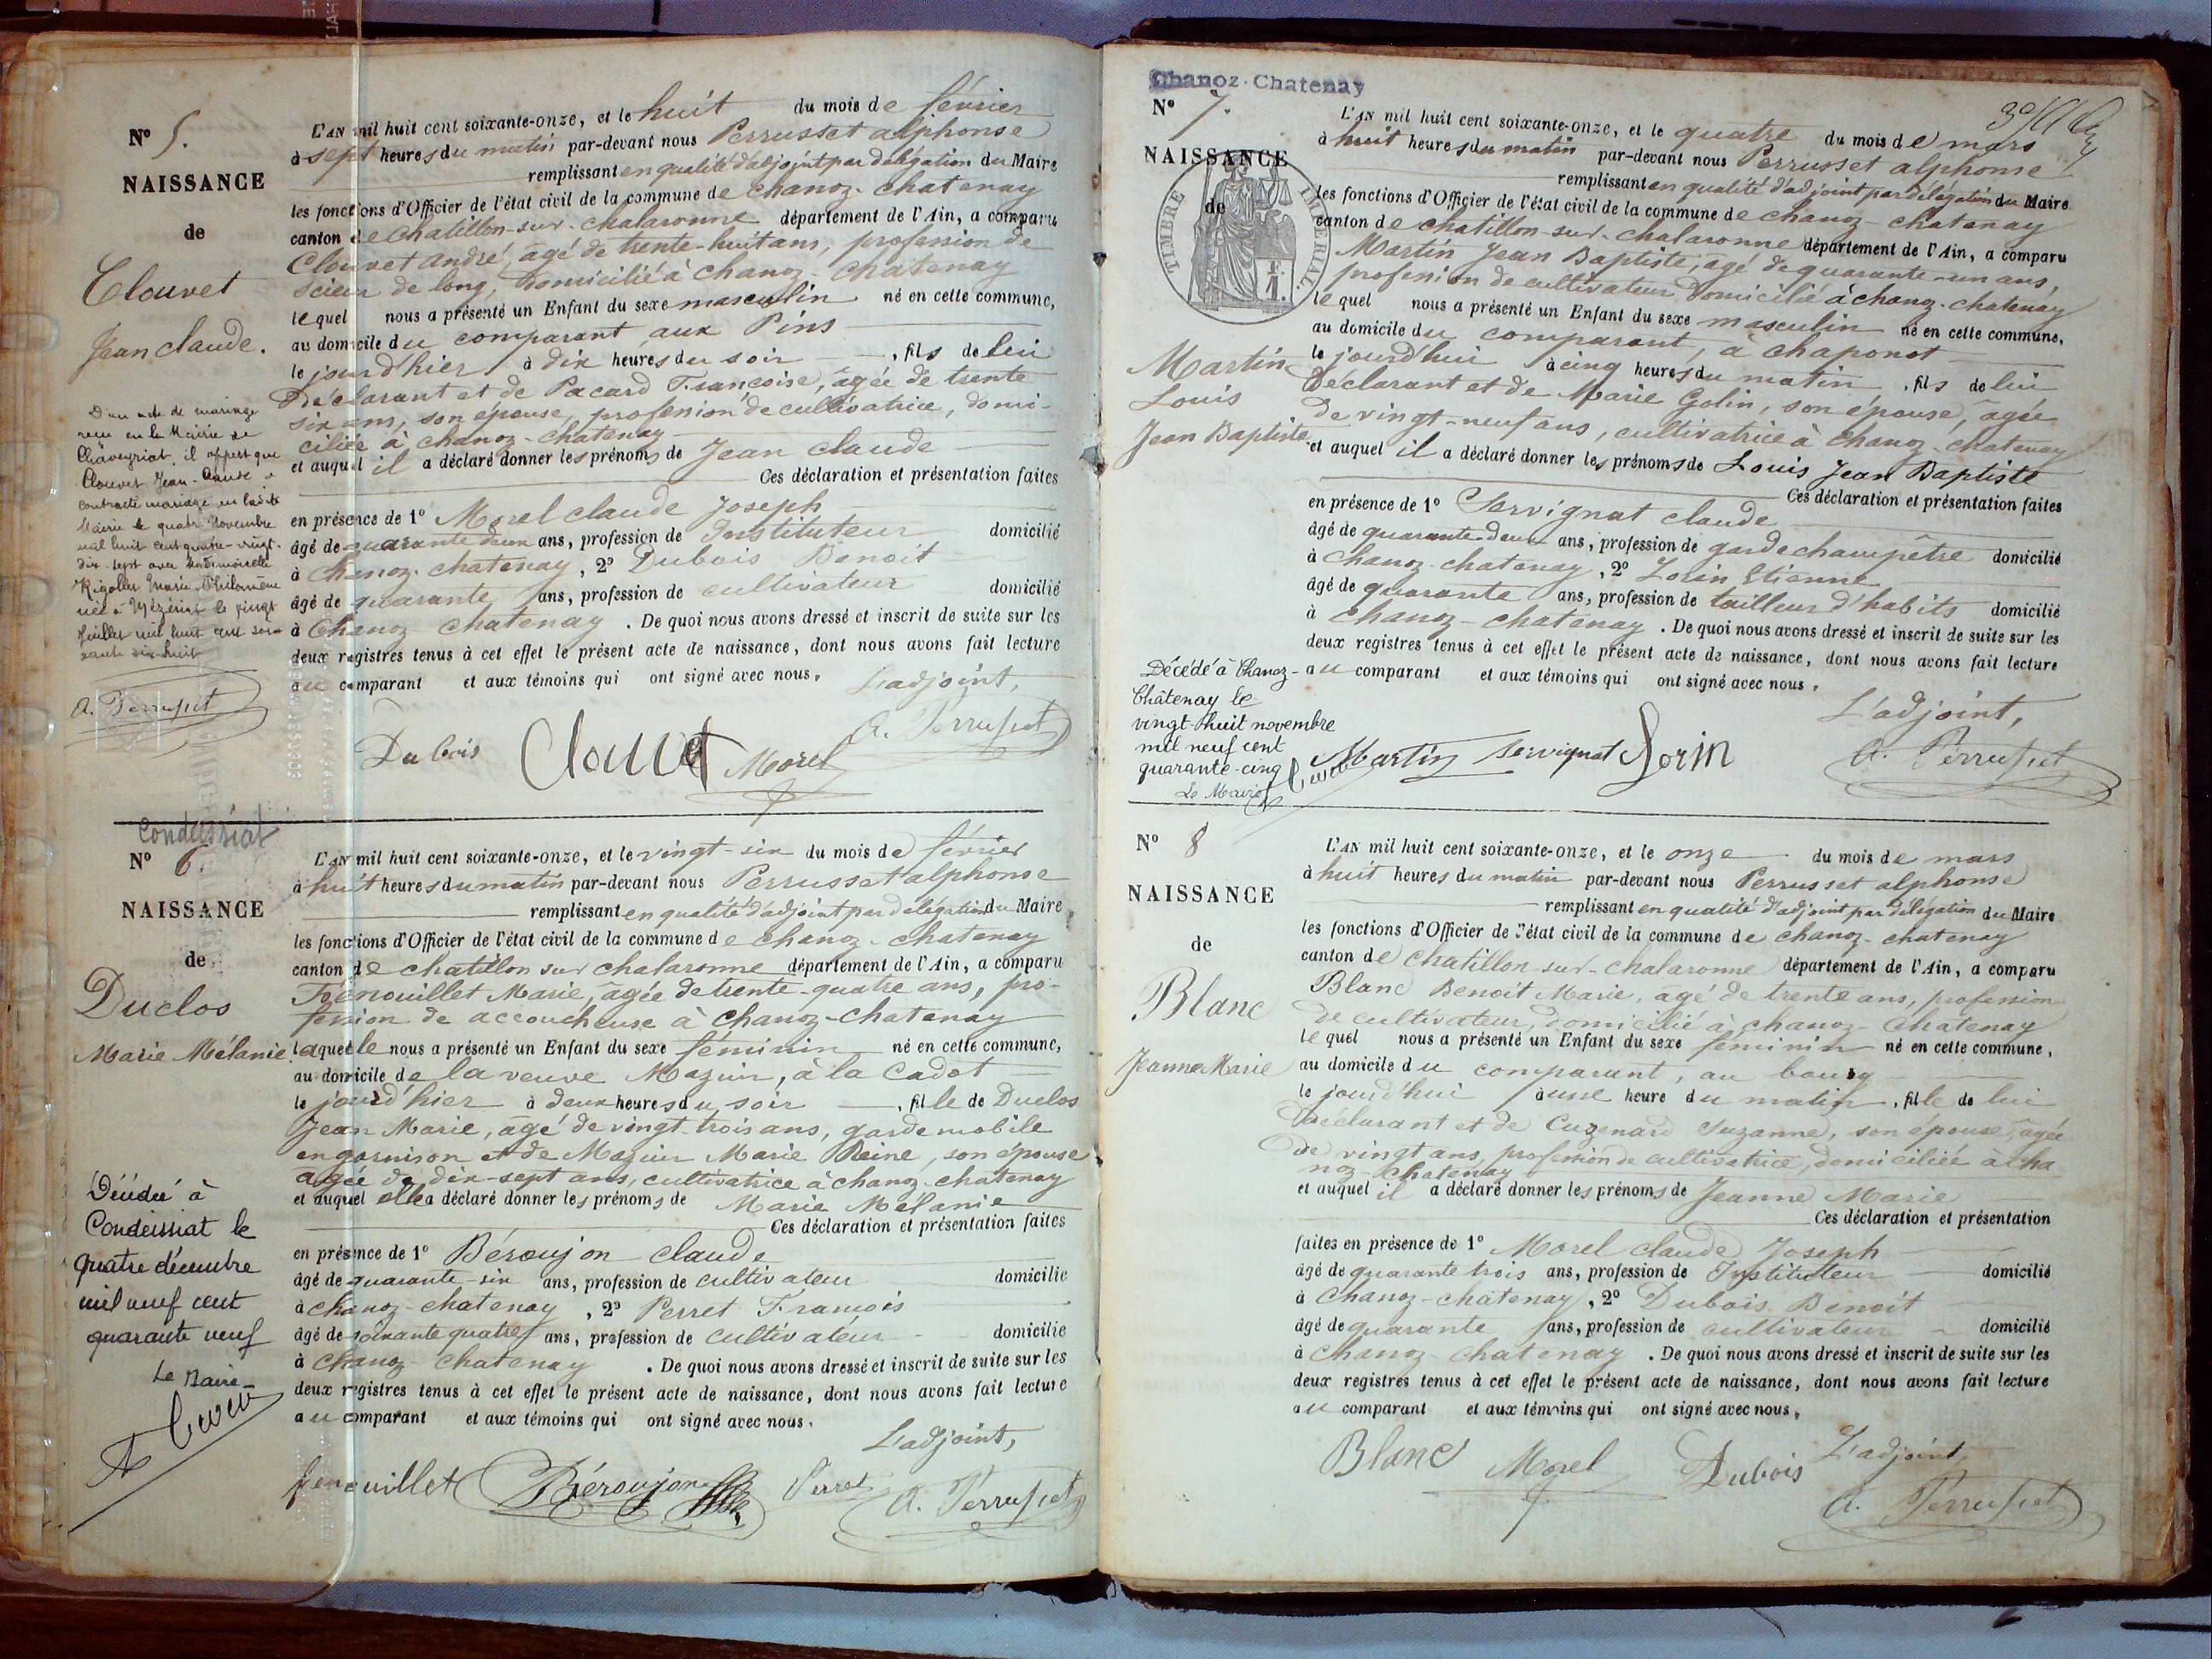 N° 5.
NAISSANCE
de
Clouvet
Jean claude.
D'un acte de mariage
reçu en la Mairie de
Chaveyriat, il appert que
Clouvet Jean-Claude a
contracté mariage en ladite
Mairie le quatre Novembre
mil huit cent quatre-vingt-
dix-sept avec Mademoiselle
Rigollet Marie Philomène
née à Mézériat le vingt
Juillet mil huit cent soi-
xante dix-huit
A. Perrusset
L'AN mil huit cent soixante-onze, et le huit du mois de février
à sept heures du matin par-devant nous Perrusset alphonse
remplissant en qualité d'adjoint par délégation du Maire
les fonctions d'Officier de l'état civil de la commune de chanoz-chatenay
canton de Chatillon-sur-chalaronne département de l'Ain, a comparu
Clouvet André, âgé de trente-huit ans, profession de
scieur de long, domicilié à chanoz-chatenay
lequel nous a présenté un Enfant du sexe masculin né en cette commune,
au domicile du comparant aux Pins
le jour d'hier à dix heures du soir, fils de lui
Déclarant et de Pacard Françoise, âgée de trente
six ans, son épouse, profession de cultivatrice, domi-
ciliée à chanoz-chatenay
et auquel il a déclaré donner les prénoms de Jean claude
Ces déclaration et présentation faites
en présence de 1° Morel claude Joseph
âgé de quarante deux ans, profession de Instituteur domicilié
à Chanoz-chatenay, 2° Dubois Benoit
âgé de quarante ans, profession de cultivateur domicilié
à Chanoz chatenay. De quoi nous avons dressé et inscrit de suite sur les
deux registres tenus à cet effet le présent acte de naissance, dont nous avons fait lecture
au comparant et aux témoins qui ont signé avec nous.
L'adjoint,
Dubois Clouvet Morel A. Perrusset
Condeissiat
N° 6.
NAISSANCE
de
Duclos
Marie Mélanie.
Décédée à
Condeissiat le
quatre décembre
mil neuf cent
quarante neuf
Le Maire
L'AN mil huit cent soixante-onze, et le vingt-six du mois de février
à huit heures du matin par-devant nous Perrusset alphonse
remplissant en qualité d'adjoint par délégation du Maire
les fonctions d'Officier de l'état civil de la commune de chanoz-chatenay
canton de chatillon sur chalaronne département de l'Ain, a comparu
Fenouillet Marie, âgée de trente-quatre ans, pro-
fession de accoucheuse à chanoz-chatenay
laquelle nous a présenté un Enfant du sexe féminin né en cette commune,
au domicile de la veuve Mazuir, à la Cadot
le jour d'hier à deux heures du soir, fille de Duclos
Jean Marie, âgé de vingt-trois ans, garde mobile
en garnison et de Mazuir Marie Reine, son épouse
âgée de dix-sept ans, cultivatrice à chanoz-chatenay
et auquel elle a déclaré donner les prénoms de Marie Mélanie
Ces déclaration et présentation faites
en présence de 1° Béroujon claude
âgé de quarante-six ans, profession de cultivateur domicilié
à chanoz-chatenay, 2° Perret François
âgé de soixante quatre ans, profession de cultivateur domicilié
à chanoz chatenay. De quoi nous avons dressé et inscrit de suite sur les
deux registres tenus à cet effet le présent acte de naissance, dont nous avons fait lecture
au comparant et aux témoins qui ont signé avec nous.
L'adjoint,
fenouillet Béroujon Perret A. Perrusset
Chanoz-Chatenay
N° 7.
NAISSANCE
de
TIMBRE IMPERIAL.
Martin
Louis
Jean Baptiste
Décédé à Chanoz-
Châtenay le
vingt-huit novembre
mil neuf cent
quarante-cinq
Le Maire
L'AN mil huit cent soixante-onze, et le quatre du mois de mars
à huit heures du matin par-devant nous Perrusset alphonse
remplissant en qualité d'adjoint par délégation du Maire
les fonctions d'Officier de l'état civil de la commune de chanoz-chatenay
canton de chatillon-sur-chalaronne département de l'Ain, a comparu
Martin Jean Baptiste, âgé de quarante-un ans,
profession de cultivateur domicilié à chanoz-chatenay
lequel nous a présenté un Enfant du sexe masculin né en cette commune,
au domicile du comparant, à chaponot
le jourd'hui à cinq heures du matin, fils de lui
Déclarant et de Marie Golin, son épouse, âgée
de vingt-neuf ans, cultivatrice à chanoz-chatenay
et auquel il a déclaré donner les prénoms de Louis Jean Baptiste
Ces déclaration et présentation faites
en présence de 1° Servignat claude
âgé de quarante-deux ans, profession de garde champêtre domicilié
à chanoz-chatenay, 2° Lorin Etienne
âgé de quarante ans, profession de tailleur d'habits domicilié
à chanoz-chatenay. De quoi nous avons dressé et inscrit de suite sur les
deux registres tenus à cet effet le présent acte de naissance, dont nous avons fait lecture
au comparant et aux témoins qui ont signé avec nous.
L'adjoint,
Martin servignat Lorin A. Perrusset
N° 8
NAISSANCE
de
Blanc
Jeanne Marie
L'AN mil huit cent soixante-onze, et le onze du mois de mars
à huit heures du matin par-devant nous Perrusset alphonse
remplissant en qualité d'adjoint par délégation du Maire
les fonctions d'Officier de l'état civil de la commune de chanoz-chatenay
canton de Chatillon-sur-chalaronne département de l'Ain, a comparu
Blanc Benoit Marie, âgé de trente ans, profession
de cultivateur, domicilié à chanoz-chatenay
lequel nous a présenté un Enfant du sexe féminin né en cette commune,
au domicile du comparant, au bourg
le jourd'hui à une heure du matin, fille de lui
Déclarant et de Cuzenard Suzanne, son épouse, âgée
de vingt ans, profession de cultivatrice, domiciliée à cha
noz-chatenay
et auquel il a déclaré donner les prénoms de Jeanne Marie
Ces déclaration et présentation
faites en présence de 1° Morel claude Joseph
âgé de quarante trois ans, profession de Instituteur domicilié
à chanoz-chatenay, 2° Dubois Benoit
âgé de quarante ans, profession de cultivateur domicilié
à chanoz chatenay. De quoi nous avons dressé et inscrit de suite sur les
deux registres tenus à cet effet le présent acte de naissance, dont nous avons fait lecture
au comparant et aux témoins qui ont signé avec nous.
L'adjoint,
Blanc Morel Dubois A. Perrusset